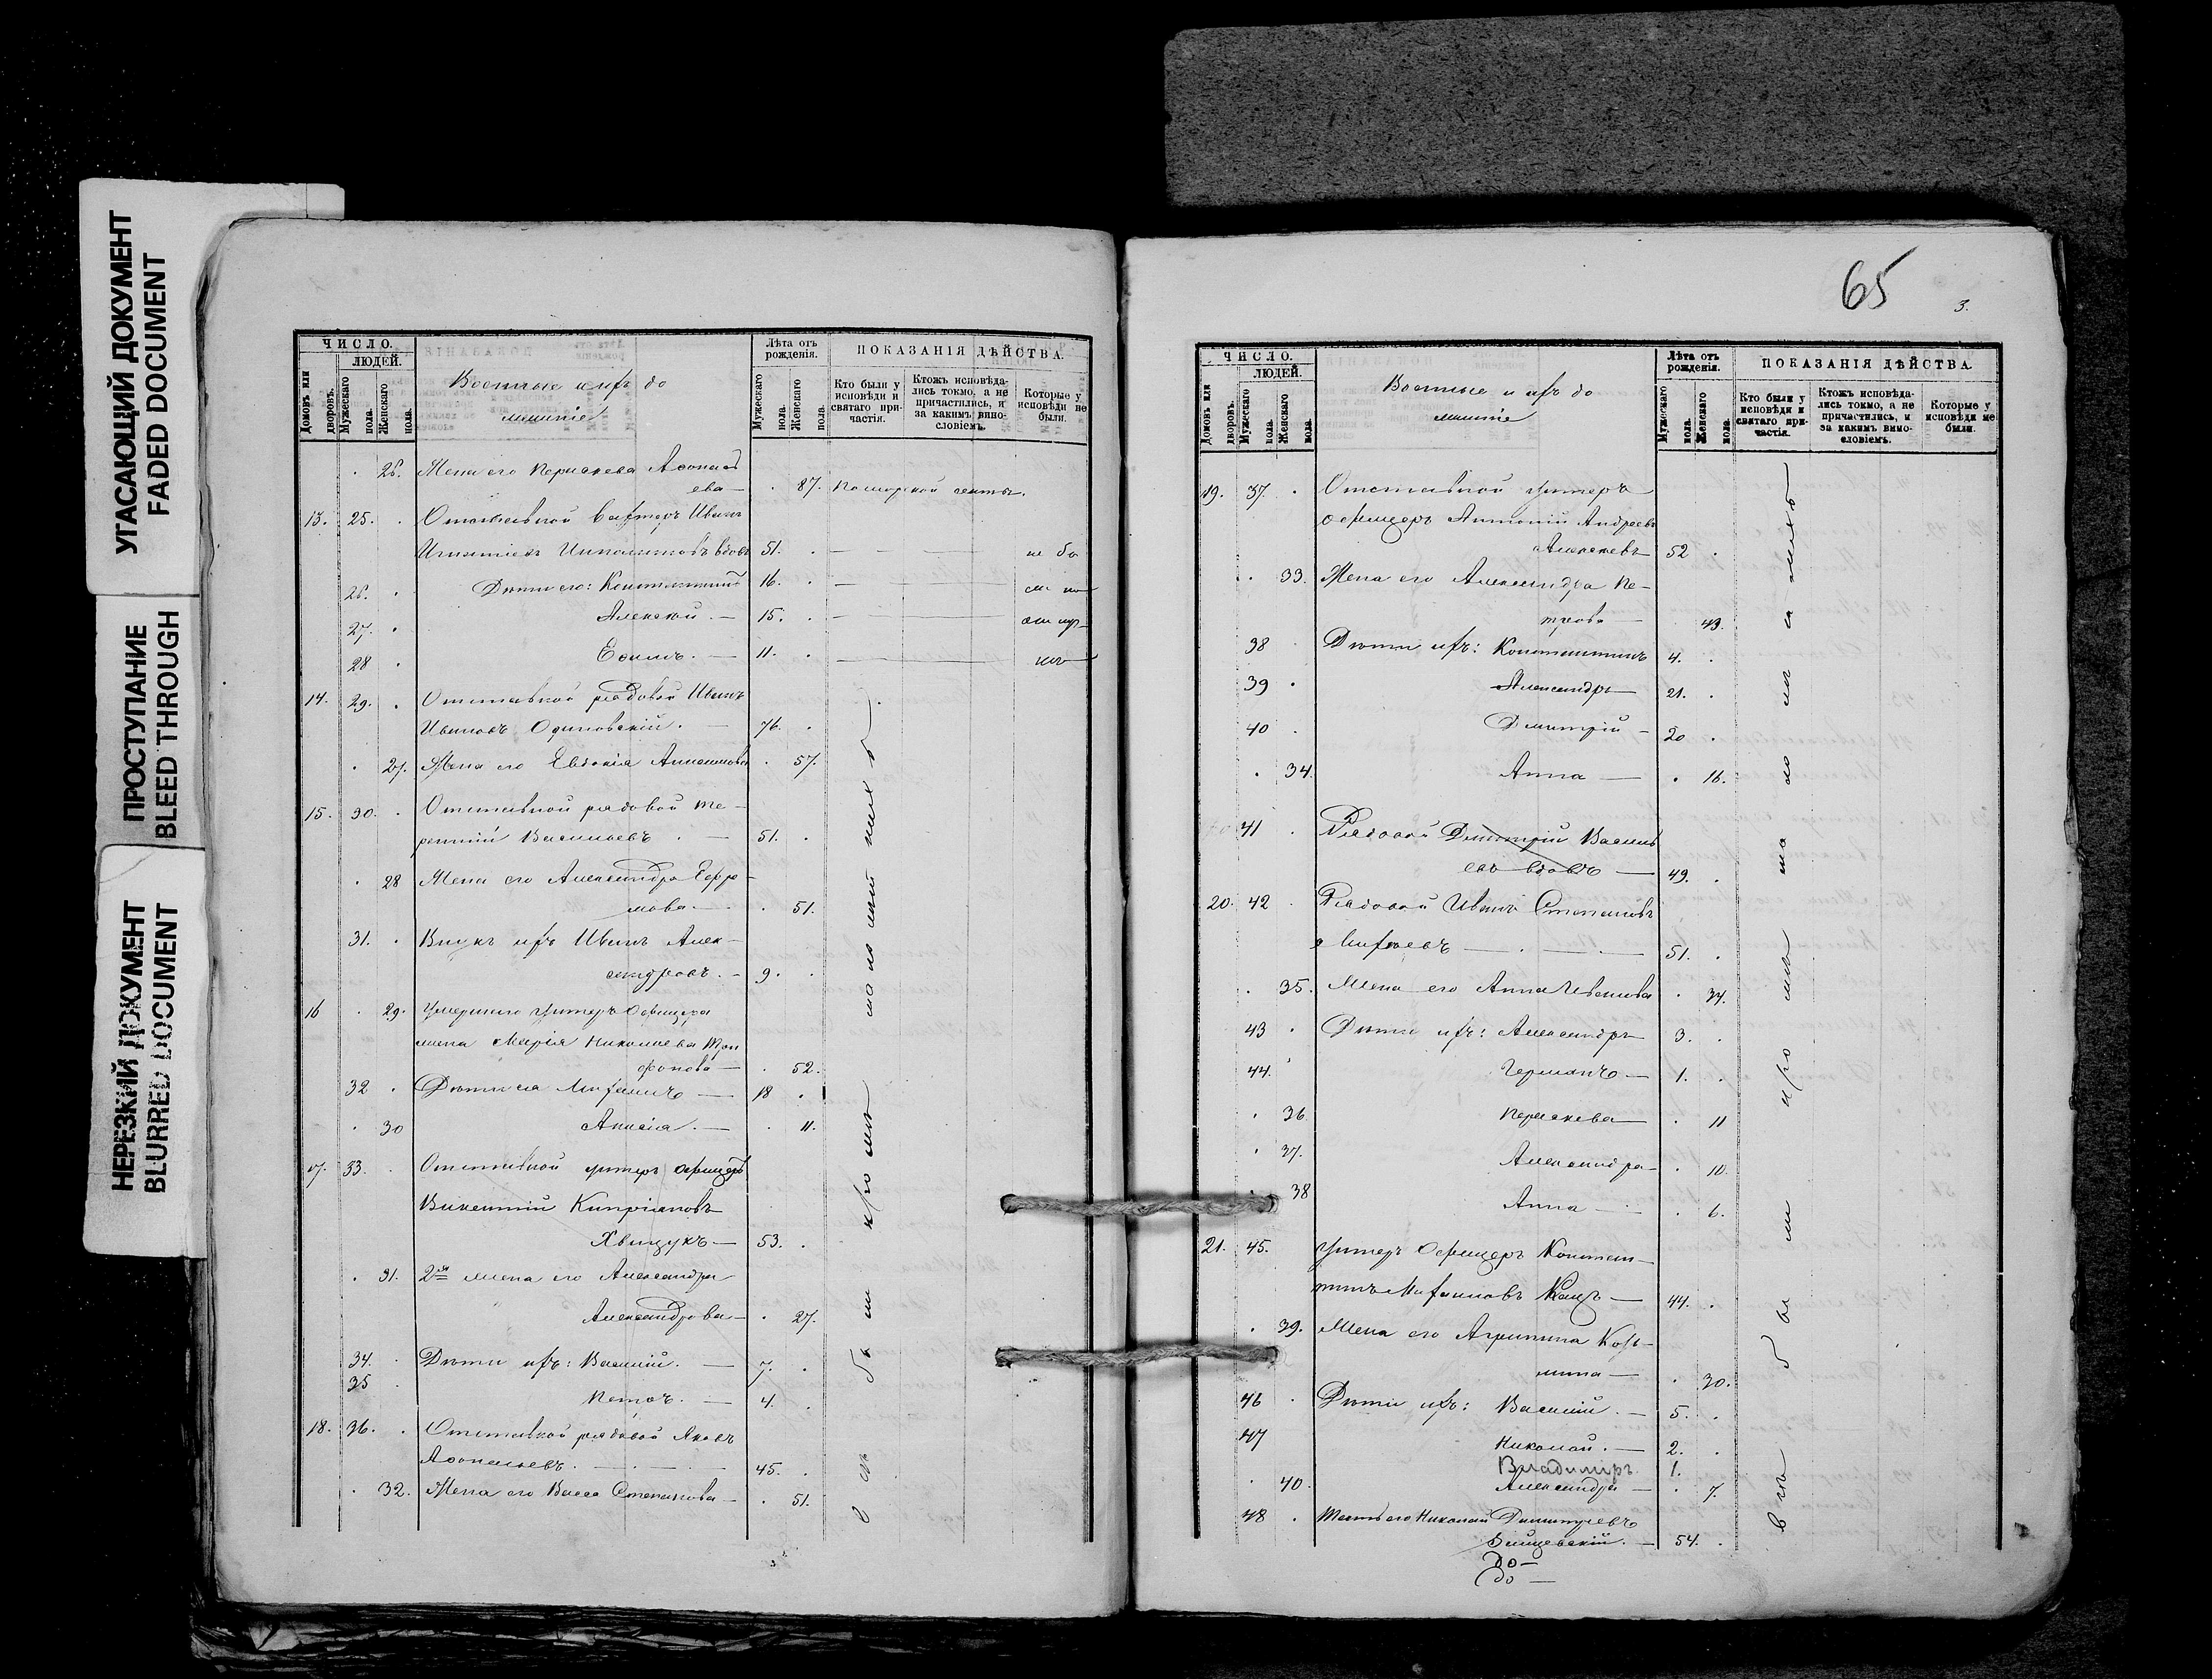 УГАСАЮЩИЙ ДОКУМЕНТ
FADED DOCUMENT
ПРОСТУПАНИЕ
BLEED THROUGH
НЕРЕЗКИЙ ДОКУМЕНТ
BLURRED DOCUMENT
ЧИСЛО.
ЛЮДЕЙ.
Домовъ или дворовъ.
Мужескаго пола.
Женскаго пола.
Военные и ихъ до
машніе
Лѣта отъ рожденія.
Мужескаго пола.
Женскаго пола.
ПОКАЗАНІЯ ДѢЙСТВА.
Кто были у исповѣди и святаго причастія.
Ктожъ исповѣдались токмо, а не причастились, и за какимъ винословіемъ.
Которые у исповѣди не были.
26. Жена его Параскева Аѳонась
ева — 87. поморской секты.
13. 25. Отставной Вахтеръ Иванъ
Игнатіевъ вдовъ 51. не бы
26. Дѣти его: Константинъ 16.
27. Алексѣй. — 15.
28 Ефимъ. — 11.
14. 29. Отставной рядовой Иванъ
Ивановъ Одиновскій. — 76.
27. Жена его Евдокія 57.
15. 30. Отставной рядовой Те-
рентій Васильевъ — 51.
28 Жена его Александра Ефре-
мова — 51.
31. Внукъ ихъ Иванъ Алек-
сандровъ. — 9.
16 29. Умершаго Унтеръ Офицера
жена Марія Николаева Три
фонова — 52.
32 Дѣти ея Михаилъ — 18
30 Анисія. — 11.
17. 33. Отставной унтеръ офицеръ
Викентій Кипріановъ
Хвищукъ — 53.
31. 2ая жена его Александра
Александрова — 27.
34. Дѣти ихъ: Василій. — 7.
35 Петръ. — 4.
18. 36. Отставной рядовой Яковъ
Аѳонасьевъ. — 45.
32. Жена его Васса Степанова — 51.
65
3.
ЧИСЛО.
ЛЮДЕЙ.
Домовъ или дворовъ.
Мужескаго пола.
Женскаго пола.
Военные и ихъ до
машніе
Лѣта отъ рожденія.
Мужескаго пола.
Женскаго пола.
ПОКАЗАНІЯ ДѢЙСТВА.
Кто были у исповѣди и святаго причастія.
Ктожъ исповѣдались токмо, а не причастились, и за какимъ винословіемъ.
Которые у исповѣди не были.
19. 37. Отставной Унтеръ
офицеръ Антоній Андреевъ
Алексѣевъ 52
33. Жена его Александра Пе-
трова — 43.
38 Дѣти ихъ: Константинъ 4.
39 Александръ — 21.
40 Дмитрій — 20
34. Анна — 16.
41 Рядовой Дмитрій Василь
евъ вдовъ — 49.
20. 42 Рядовой Иванъ Степановъ
51.
35. Жена его Анна Иванова 34.
43 Дѣти ихъ: Александръ 3.
44. Германъ — 1.
36 Параскева — 11
37. Александра — 10.
38 Анна — 6.
21. 45. Унтеръ Офицеръ Констан-
тинъ Михаиловъ Кацъ — 44.
39. Жена его Агрипина Козь-
мина — 30.
46 Дѣти ихъ: Василій. — 5.
47 Николай. — 2.
Владиміръ 1.
40. Александра — 7.
48 Тесть его Николай Димитріевъ
54.
До —
до —